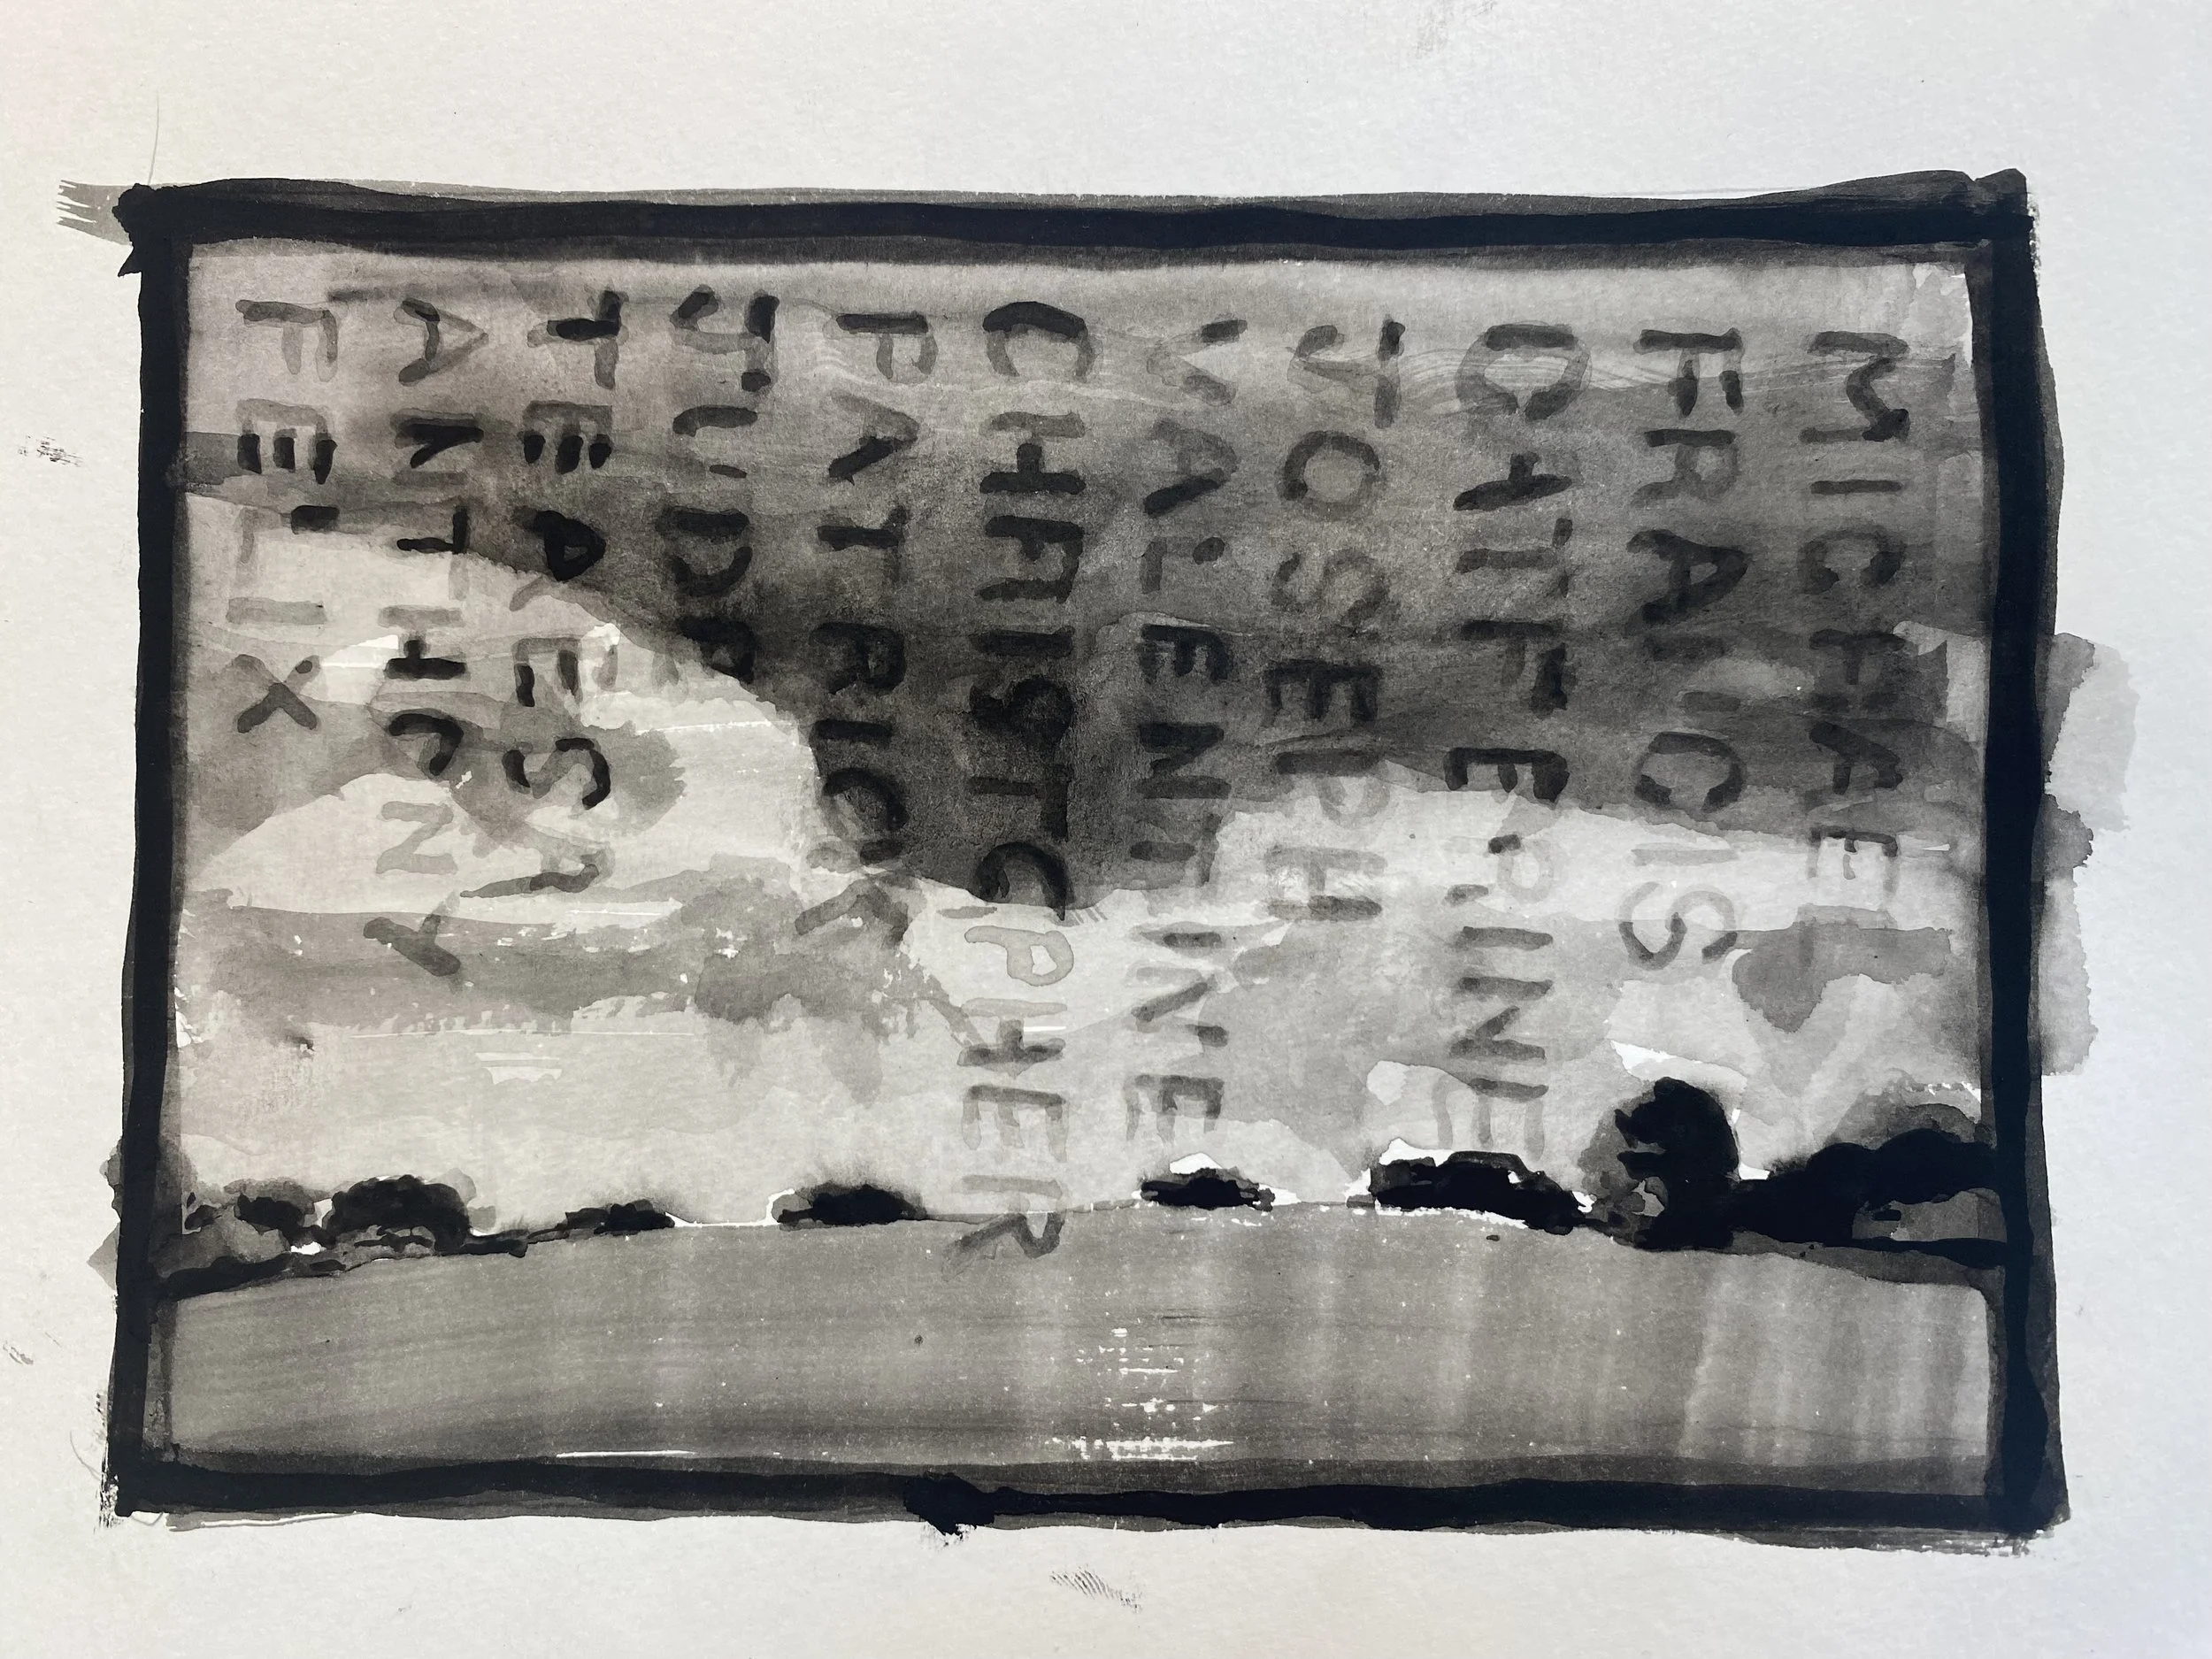 MICHAEL
FRANCIS
CATHERINE
JOSEPH
VALENTINE
CHRISTOPHER
PATRICK
JUDE
TERESA
ANTHONY
FELIX